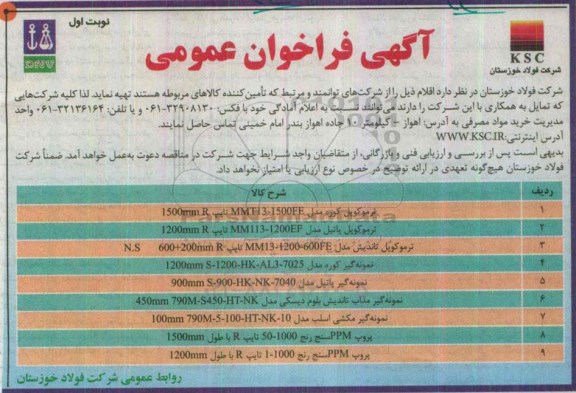 نوبت اول
آگهی فراخوان عمومی
KSC
شرکت فولاد خوزستان
DNV
شرکت فولاد خوزستان در نظر دارد اقلام ذیل را از شرکت‌های توانمند و مرتبط که تأمین‌کننده کالاهای مربوطه هستند تهیه نماید. لذا کلیه شرکت‌هایی
که تمایل به همکاری با این شرکت را دارند می‌توانند نسبت به اعلام آمادگی خود با فکس: ۳۲۹۰۸۱۳۰-۰۶۱ و یا تلفن: ۳۲۱۳۶۱۶۴-۰۶۱ واحد
مدیریت خرید مواد مصرفی به آدرس: اهواز کیلومتر جاده اهواز بندر امام خمینی تماس حاصل نمایند.
آدرس اینترنتی:WWW.KSC.IR
بدیهی است پس از بررسی و ارزیابی فنی و بازرگانی، از متقاضیان واجد شرایط جهت شرکت در مناقصه دعوت به‌عمل خواهد آمد. ضمناً شرکت
فولاد خوزستان هیچ‌گونه تعهدی در ارائه توضیح در خصوص نوع ارزیابی یا امتیاز نخواهد داد.
ردیف شرح کالا
۱ ترموکوپل کوره مدل MMT13-1500FE تایپ 1500mm R
۲ ترموکوپل پاتیل مدل MM113-1200EF تایپ 1200mm R
۳ ترموکوپل تاندیش مدل MM13-1200-600FE تایپ 600+200mm R N.S
۴ نمونه‌گیر کوره مدل 1200mm S-1200-HK-AL3-7025
۵ نمونه‌گیر پاتیل مدل 900mm S-900-HK-NK-7040
۶ نمونه‌گیر مذاب تاندیش بلوم دیسکی مدل 450mm 790M-S450-HT-NK
۷ نمونه‌گیر مکشی اسلب مدل 100mm 790M-5-100-HT-NK-10
۸ پروب PPMسنج رنج 1000-50 تایپ R با طول 1500mm
۹ پروب PPMسنج رنج 1000-1 تایپ R با طول 1200mm
روابط عمومی شرکت فولاد خوزستان